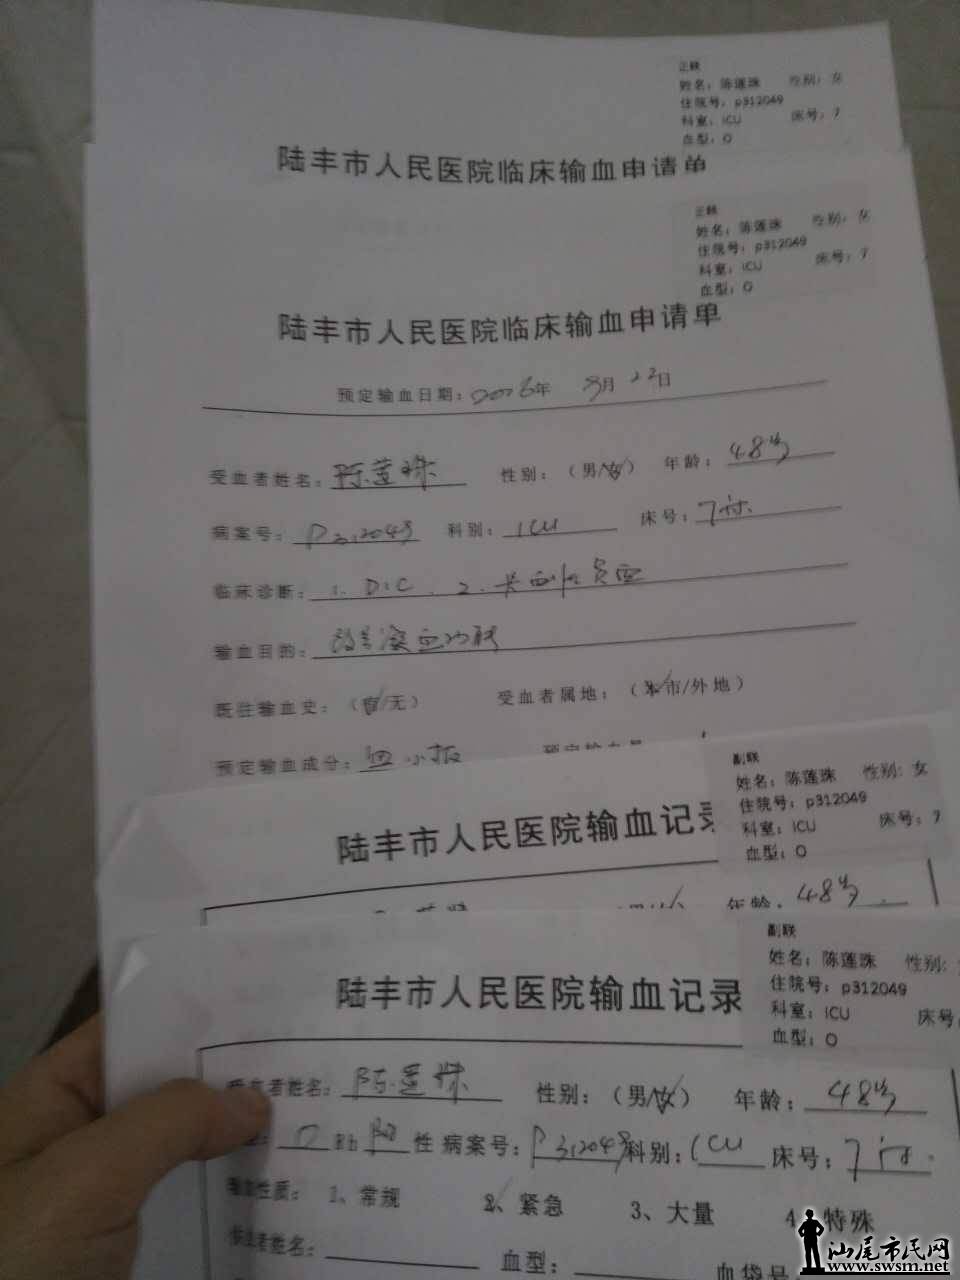 正联
姓名：陈莲珠 性别：女
住院号：p312049
科室：ICU 床号：7
血型：O
陆丰市人民医院临床输血申请单
正联
姓名：陈莲珠 性别：女
住院号：p312049
科室：ICU 床号：7
血型：O
陆丰市人民医院临床输血申请单
预定输血日期：2016年 9月 22日
受血者姓名：陈莲珠 性别：（男/女） 年龄：48岁
病案号：P312049 科别：ICU 床号：7床
临床诊断：1. DIC. 2. 失血性贫血
输血目的：改善凝血功能
既往输血史：（有/无） 受血者属地：（本市/外地）
预定输血成分：血小板
副联
姓名：陈莲珠 性别：女
住院号：p312049
科室：ICU 床号：7
血型：O
陆丰市人民医院输血记录
年龄：48岁
副联
姓名：陈莲珠 性别：
住院号：p312049
科室：ICU 床号
血型：O
陆丰市人民医院输血记录
受血者姓名：陈莲珠 性别：（男/女） 年龄：48岁
O Rh 阳 性 病案号：P312049 科别：ICU 床号：7床.
输血性质： 1、常规 2、紧急 3、大量 4、特殊
供血者姓名： 血型： 血袋号
汕尾市民网
www.swsm.net